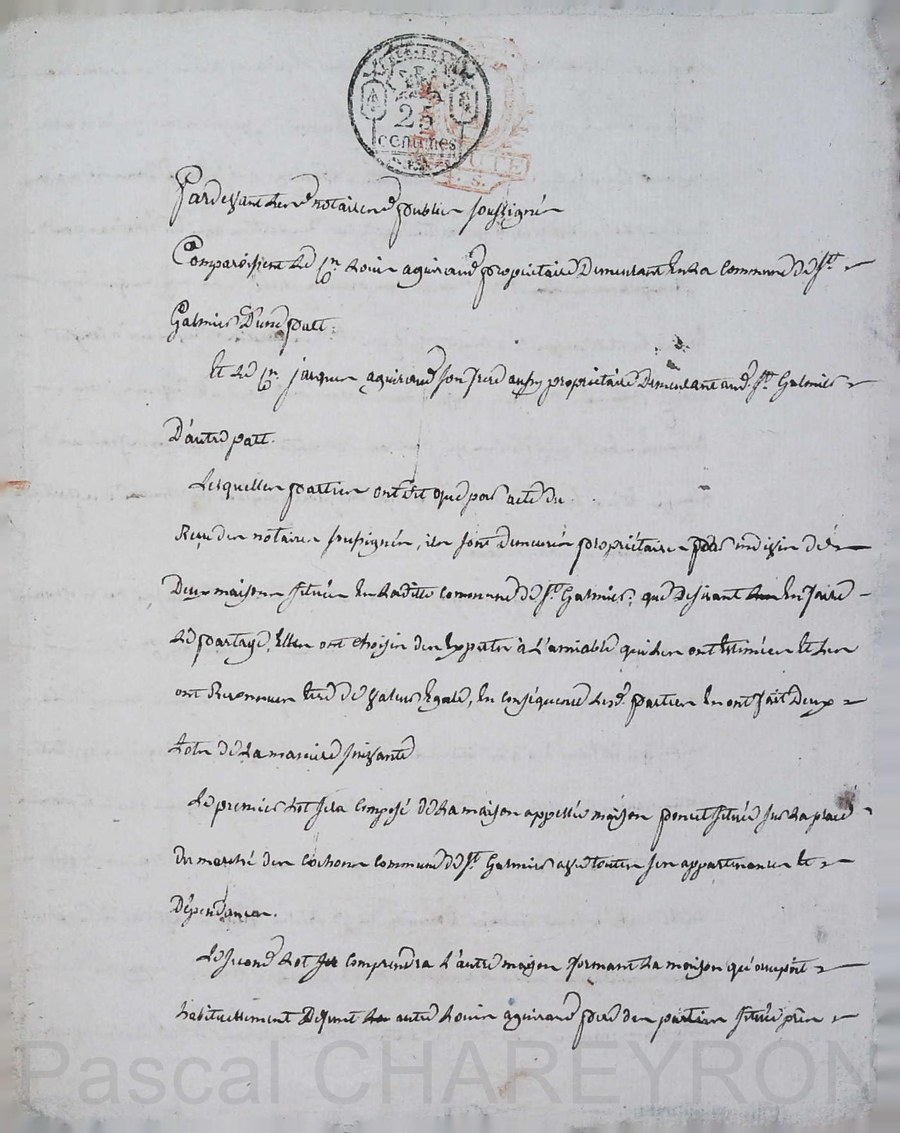 25
centimes
Pardevant Les notaires publics soussignés
Comparoissent Le Cn Louis aguiraud propriétaire Demeurant En La Commune de St
Galmier D'une part.
Et Le Cn jacques aguiraud son frere aussy propriétaire Demeurant aud. St Galmier
D'autre part.
Lesquelles parties ont dit que par acte du
Reçu des notaires soussignés, ils sont demeurés propriétaires par indivis de
Deux maisons situées En Laditte Commune de St Galmier, que Desirant En faire
Le partage, Elles ont choisi des Experts à L'amiable qui Les ont Estimées Et Les
ont Reconnues être de valeur Egale, En conséquence Lesd. parties En ont fait Deux
Lots de La maniere suivante
Le premier Lot sera Composé de La maison appellée maison poncet située sur La place
du marché des Cochons Commune de St Galmier avec toutes ses appartenances Et
Dépendances.
Le second Lot Comprendra L'autre maison formant La maison qu'occupoit
habituellement Defunt autre Louis aguiraud pere des parties située près
Pascal CHAREYRON